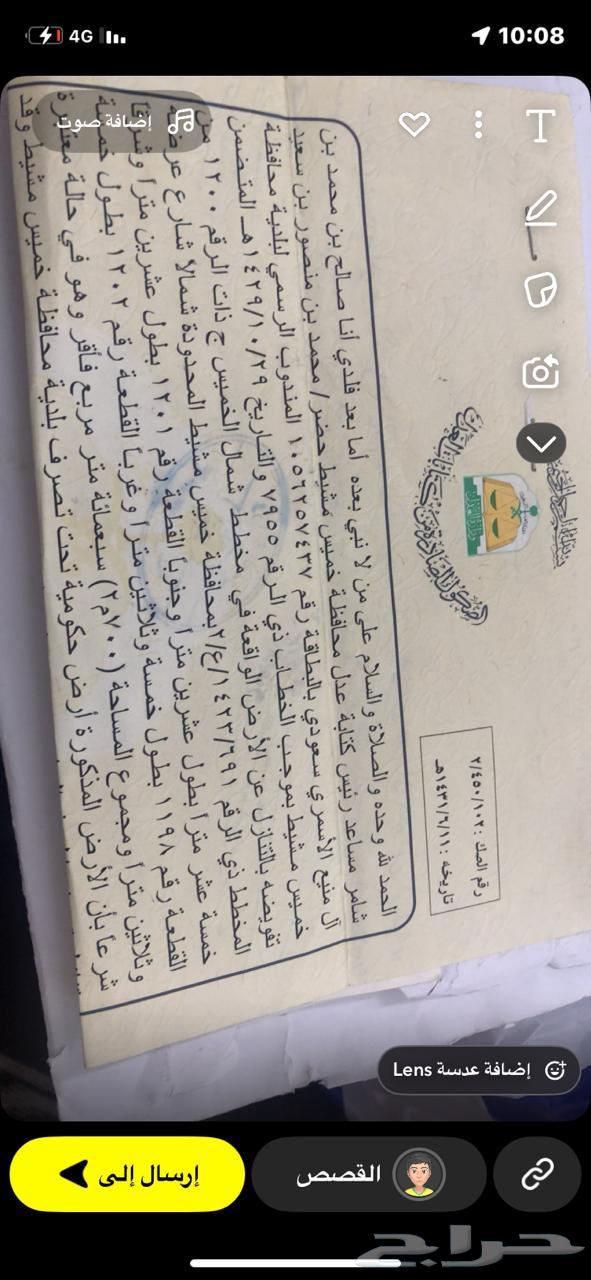 4G
10:08
إضافة صوت
T
رقم الصك : ٢/٤٥٠/١٠٢
تاريخه : ١٤٣١/٦/١١هـ
الحمد لله وحده والصلاة والسلام على من لا نبي بعده أما بعد فلدي أنا صالح بن محمد بن
شامر مساعد رئيس كتابة عدل محافظة خميس مشيط حضر / محمد بن منصور بن سعيد
آل منيع الأسمري سعودي بالبطاقة رقم ١٠٥٦٢٥٧٤٣٧ المندوب الرسمي لبلدية محافظة
خميس مشيط بموجب الخطاب ذي الرقم ٧٩٥٥ والتاريخ ١٤٢٩/١٠/٢٩هـ المتضمن
تفويضه بالتنازل عن الأرض الواقعة في مخطط شمال الخميس ج ذات الرقم ١٢٠٠ من
المخطط ذي الرقم ١٤٢٣/٦٩١/ع/٢ بمحافظة خميس مشيط المحدودة شمالا شارع عرضه
خمسة عشر متراً بطول عشرين متراً وجنوباً القطعة رقم ١٢٠١ بطول عشرين متراً وشرقاً
القطعة رقم ١١٩٨ بطول خمسة وثلاثين متراً وغرباً القطعة رقم ١٢٠٢ بطول خمسة
وثلاثين متراً ومجموع المساحة (٧٠٠م٢) سبعمائة متر مربع فأقر وهو في حالة معتبرة
شرعاً بأن الأرض المذكورة أرض حكومية تحت تصرف بلدية محافظة خميس مشيط وقد
إضافة عدسة Lens
إرسال إلى
القصص
حراج